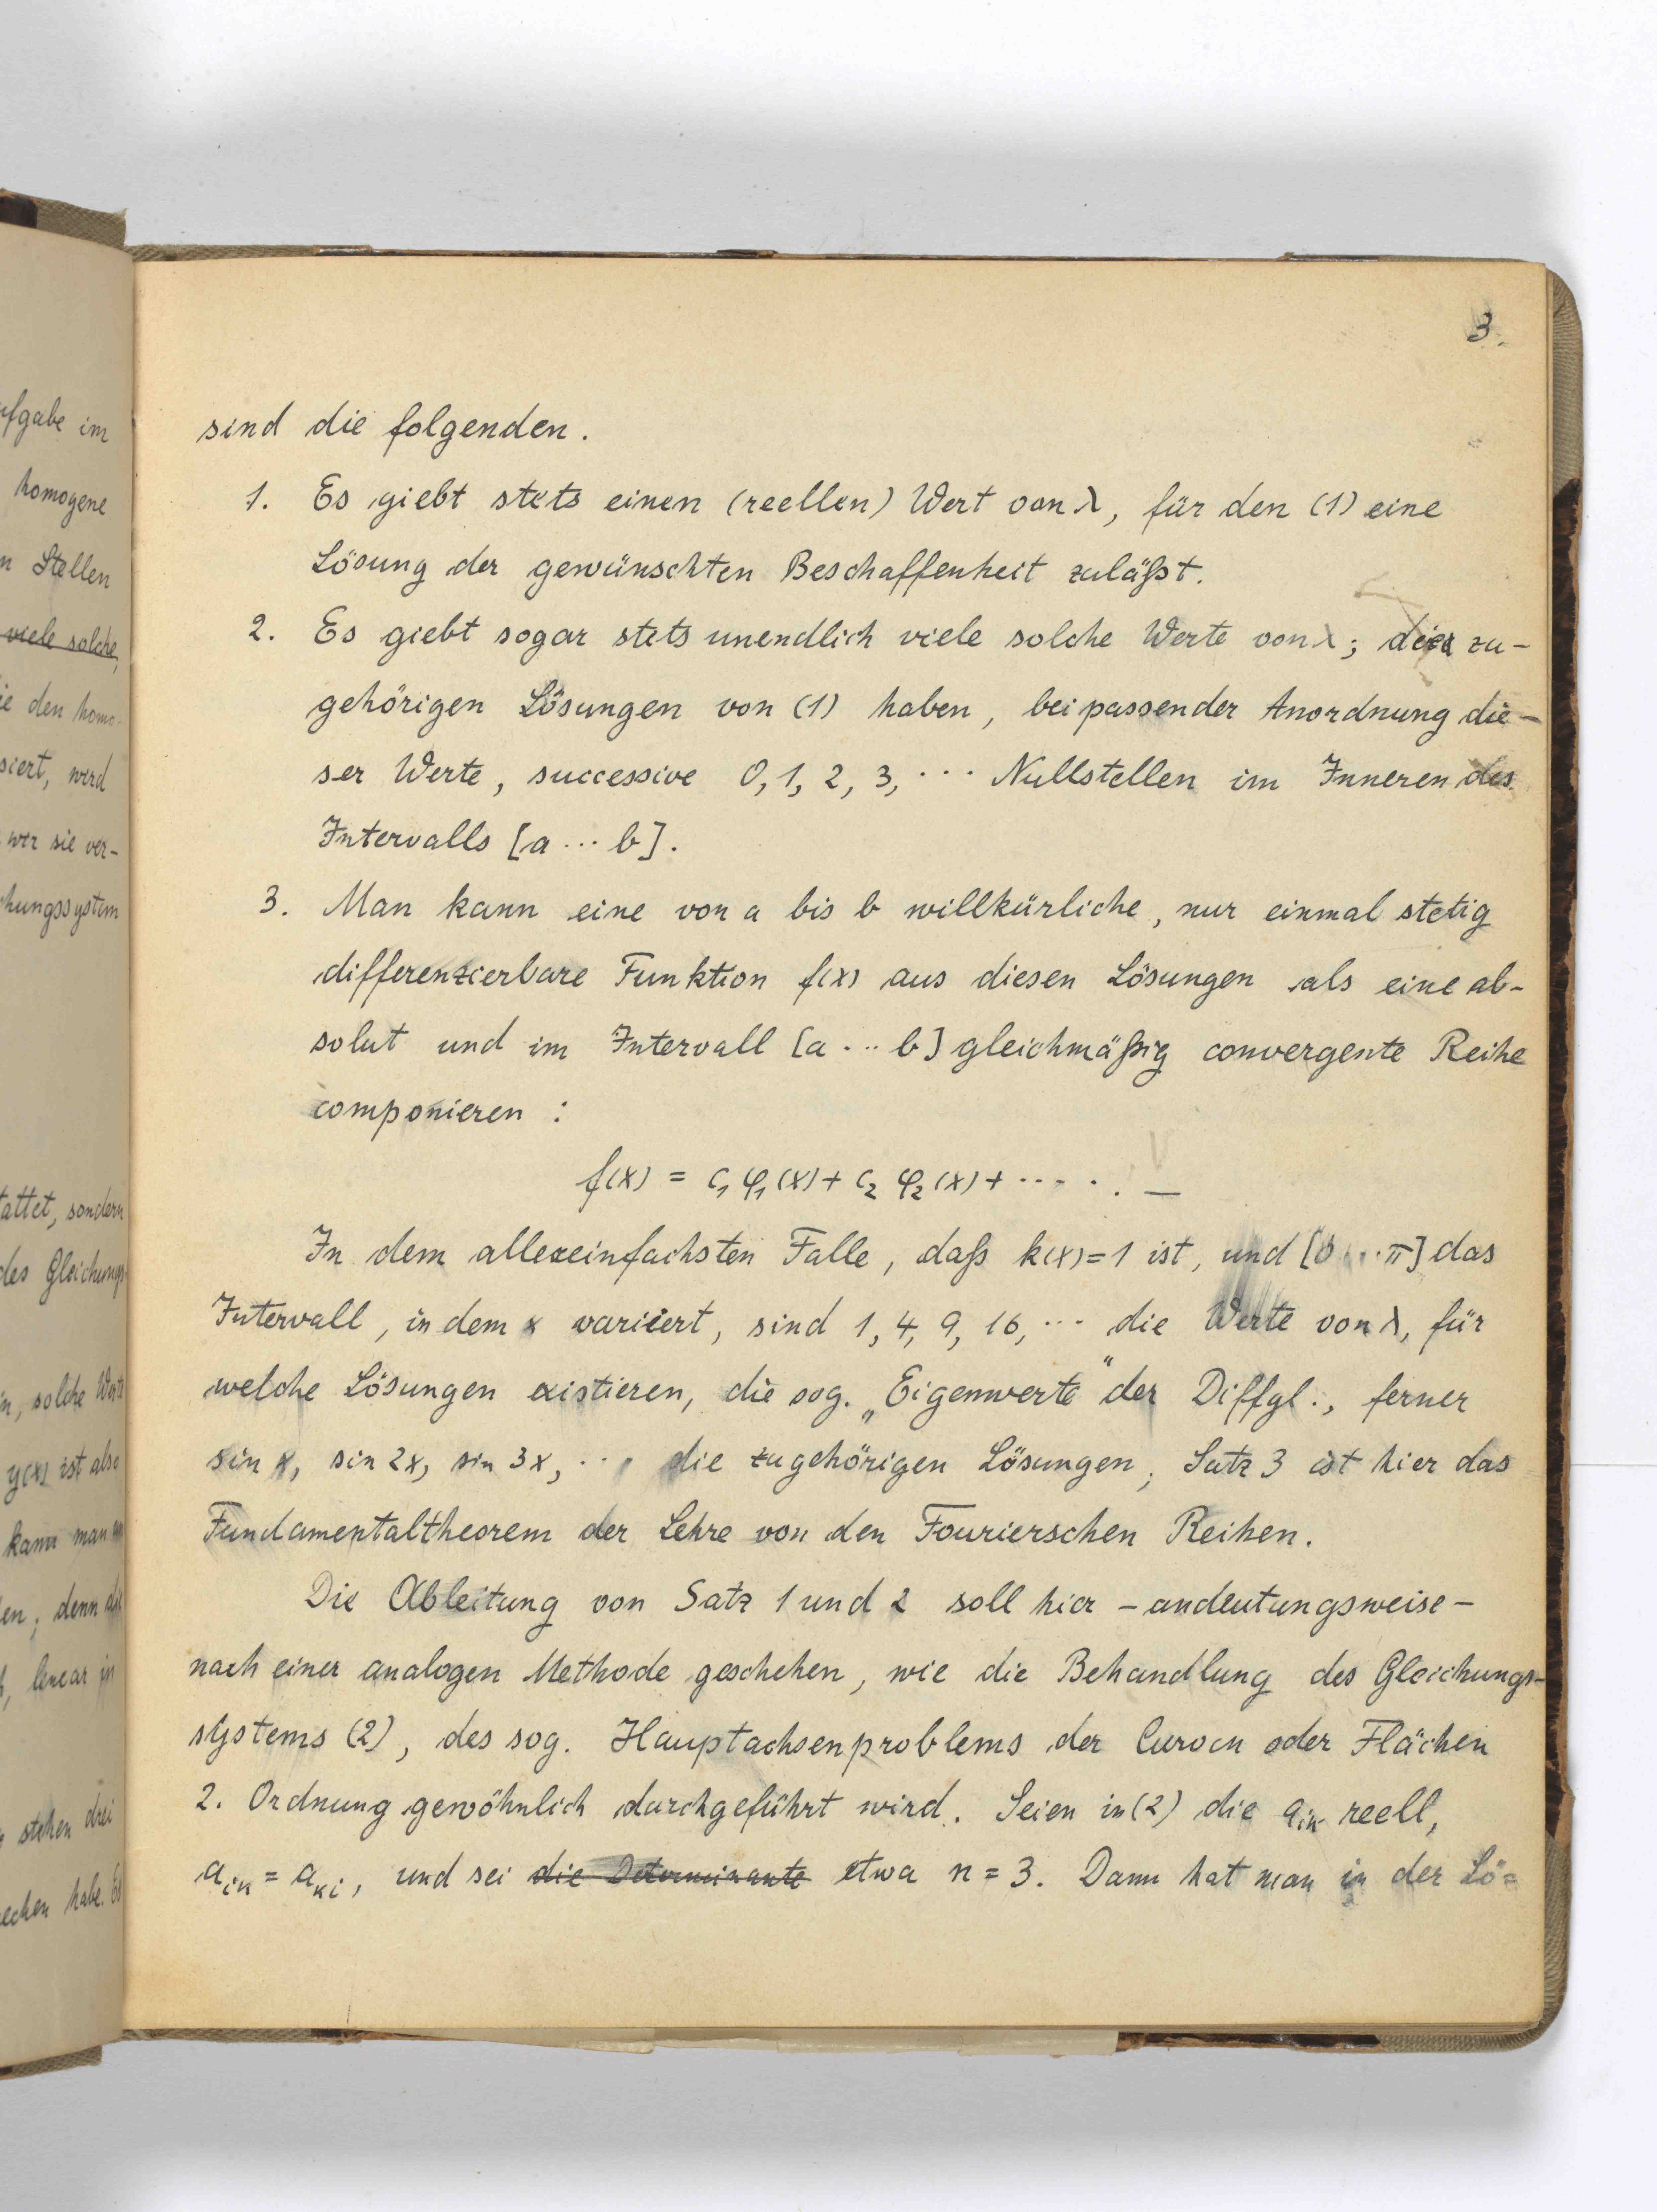 3.
sind die folgenden.
1. Es giebt stets einen (reellen) Wert von λ, für den (1) eine
Lösung der gewünschten Beschaffenheit zuläßt.
2. Es giebt sogar stets unendlich viele solche Werte von λ; die zu-
gehörigen Lösungen von (1) haben, bei passender Anordnung die-
ser Werte, successive 0, 1, 2, 3, ··· Nullstellen im Inneren des
Intervalls [a ··· b].
3. Man kann eine von a bis b willkürliche, nur einmal stetig
differenzierbare Funktion f(x) aus diesen Lösungen als eine ab-
solut und im Intervall [a ··· b] gleichmäßig convergente Reihe
componieren :
f(x) = c₁ φ₁(x) + c₂ φ₂(x) + ····· . —
In dem allereinfachsten Falle, daß k(x)=1 ist, und [0 ··· π] das
Intervall, in dem x variiert, sind 1, 4, 9, 16, ··· die Werte von λ, für
welche Lösungen existieren, die sog. „Eigenwerte" der Diffgl., ferner
sin x, sin 2x, sin 3x, ··· die zugehörigen Lösungen; Satz 3 ist hier das
Fundamentaltheorem der Lehre von den Fourierschen Reihen.
Die Ableitung von Satz 1 und 2 soll hier – andeutungsweise –
nach einer analogen Methode geschehen, wie die Behandlung des Gleichungs-
systems (2), des sog. Hauptachsenproblems der Curven oder Flächen
2. Ordnung gewöhnlich durchgeführt wird. Seien in (2) die aᵢₖ reell,
aᵢₖ = aₖᵢ, und sei die Determinante etwa n = 3. Dann hat man in der Lö=
ufgabe im
homogene
n Stellen
viele solche,
ie den homo-
siert, wird
wir sie ver-
hungssystem
tattet, sondern
des Gleichungs-
in, solche Werte
y(x) ist also
kann man
en; denn
linear in
stehen drei
echen habe. Es